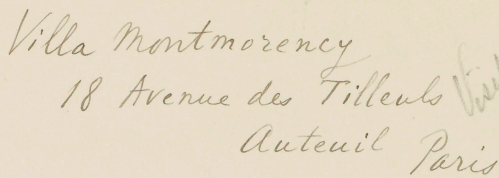 Villa Montmorency
18 Avenue des Tilleuls
Auteuil Paris